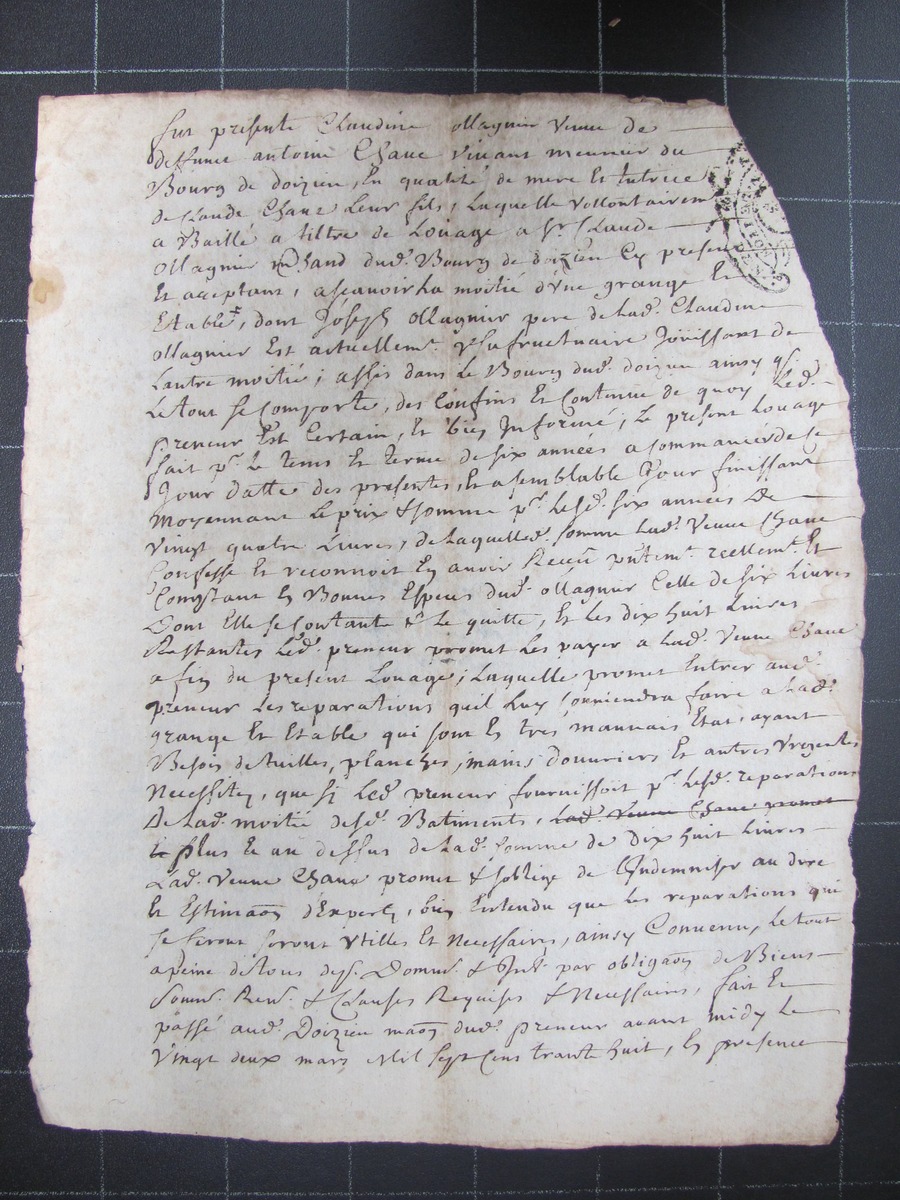 fut presente Claudine ollagnier veuve de
deffunct antoine Chave vivant meunier du
Bourg de doizieu, En qualité de mere Et tutrice
de Claude Chave leur fils, laquelle vollontairem
a Baillé a tiltre de Louage a Sr Claude
ollagnier mchand dud. Bourg de doizieu Cy present
Et acceptant, ascavoir la moitié d'une grange Et
Etable, dont Joseph ollagnier pere de lad. Claudine
ollagnier Est actuellemt. Usufructuaire Jouissant de
lautre moitié; assis dans le Bourg dud. doizieu ainsy q.
le tout se comporte, des Confins Et Contenue de quoy led.
preneur Est Certain, Et bien Informé; le present Louage
fait pr. le tems Et terme de six années a commancer de ce
Jour datte des presentes, Et a semblable Jour finissant
moyennant le prix & somme pr. lesd. six années de
vingt quatre Livres, de laquelle somme lad. veuve Chave
Confesse Et reconnoit En avoir Receu pntemt. reellemt. Et
Comptant En Bonnes Especes dud. ollagnier Celle de six Livres
Dont Elle se contante & le quitte, Et les dix huit Livres
Restantes led. preneur promet les payer a lad. veuve Chave
a fin du present Louage; laquelle promet Entrer aud.
preneur les reparations quil luy conviendra faire a lad.
grange Et Etable qui sont En tres mauvais Etat, ayant
Besoin de tuilles, planches, mains douvriers Et autres Urgentes
Necessitez, que si led. preneur fournissoit pr. lesd. reparations
De lad. moitié desd. Batiments, lad. veuve Chave promet
plus Et au dessus de lad. somme de dix huit Livres
Lad. veuve Chave promet & soblige de lIndemniser au dire
Et Estimaon dExperts, bien Entendu que les reparations qui
se feront seront Utilles Et Necessaires, ainsy Convenu, le tout
a peine de tous desp. Domm. & Int. par obligaon de Biens
Soum. Ren. & Clauses Requises & Necessaires, fait Et
passé aud. Doizieu maon dud. preneur avant midy le
vingt deux mars Mil sept cens trante huit, En presence